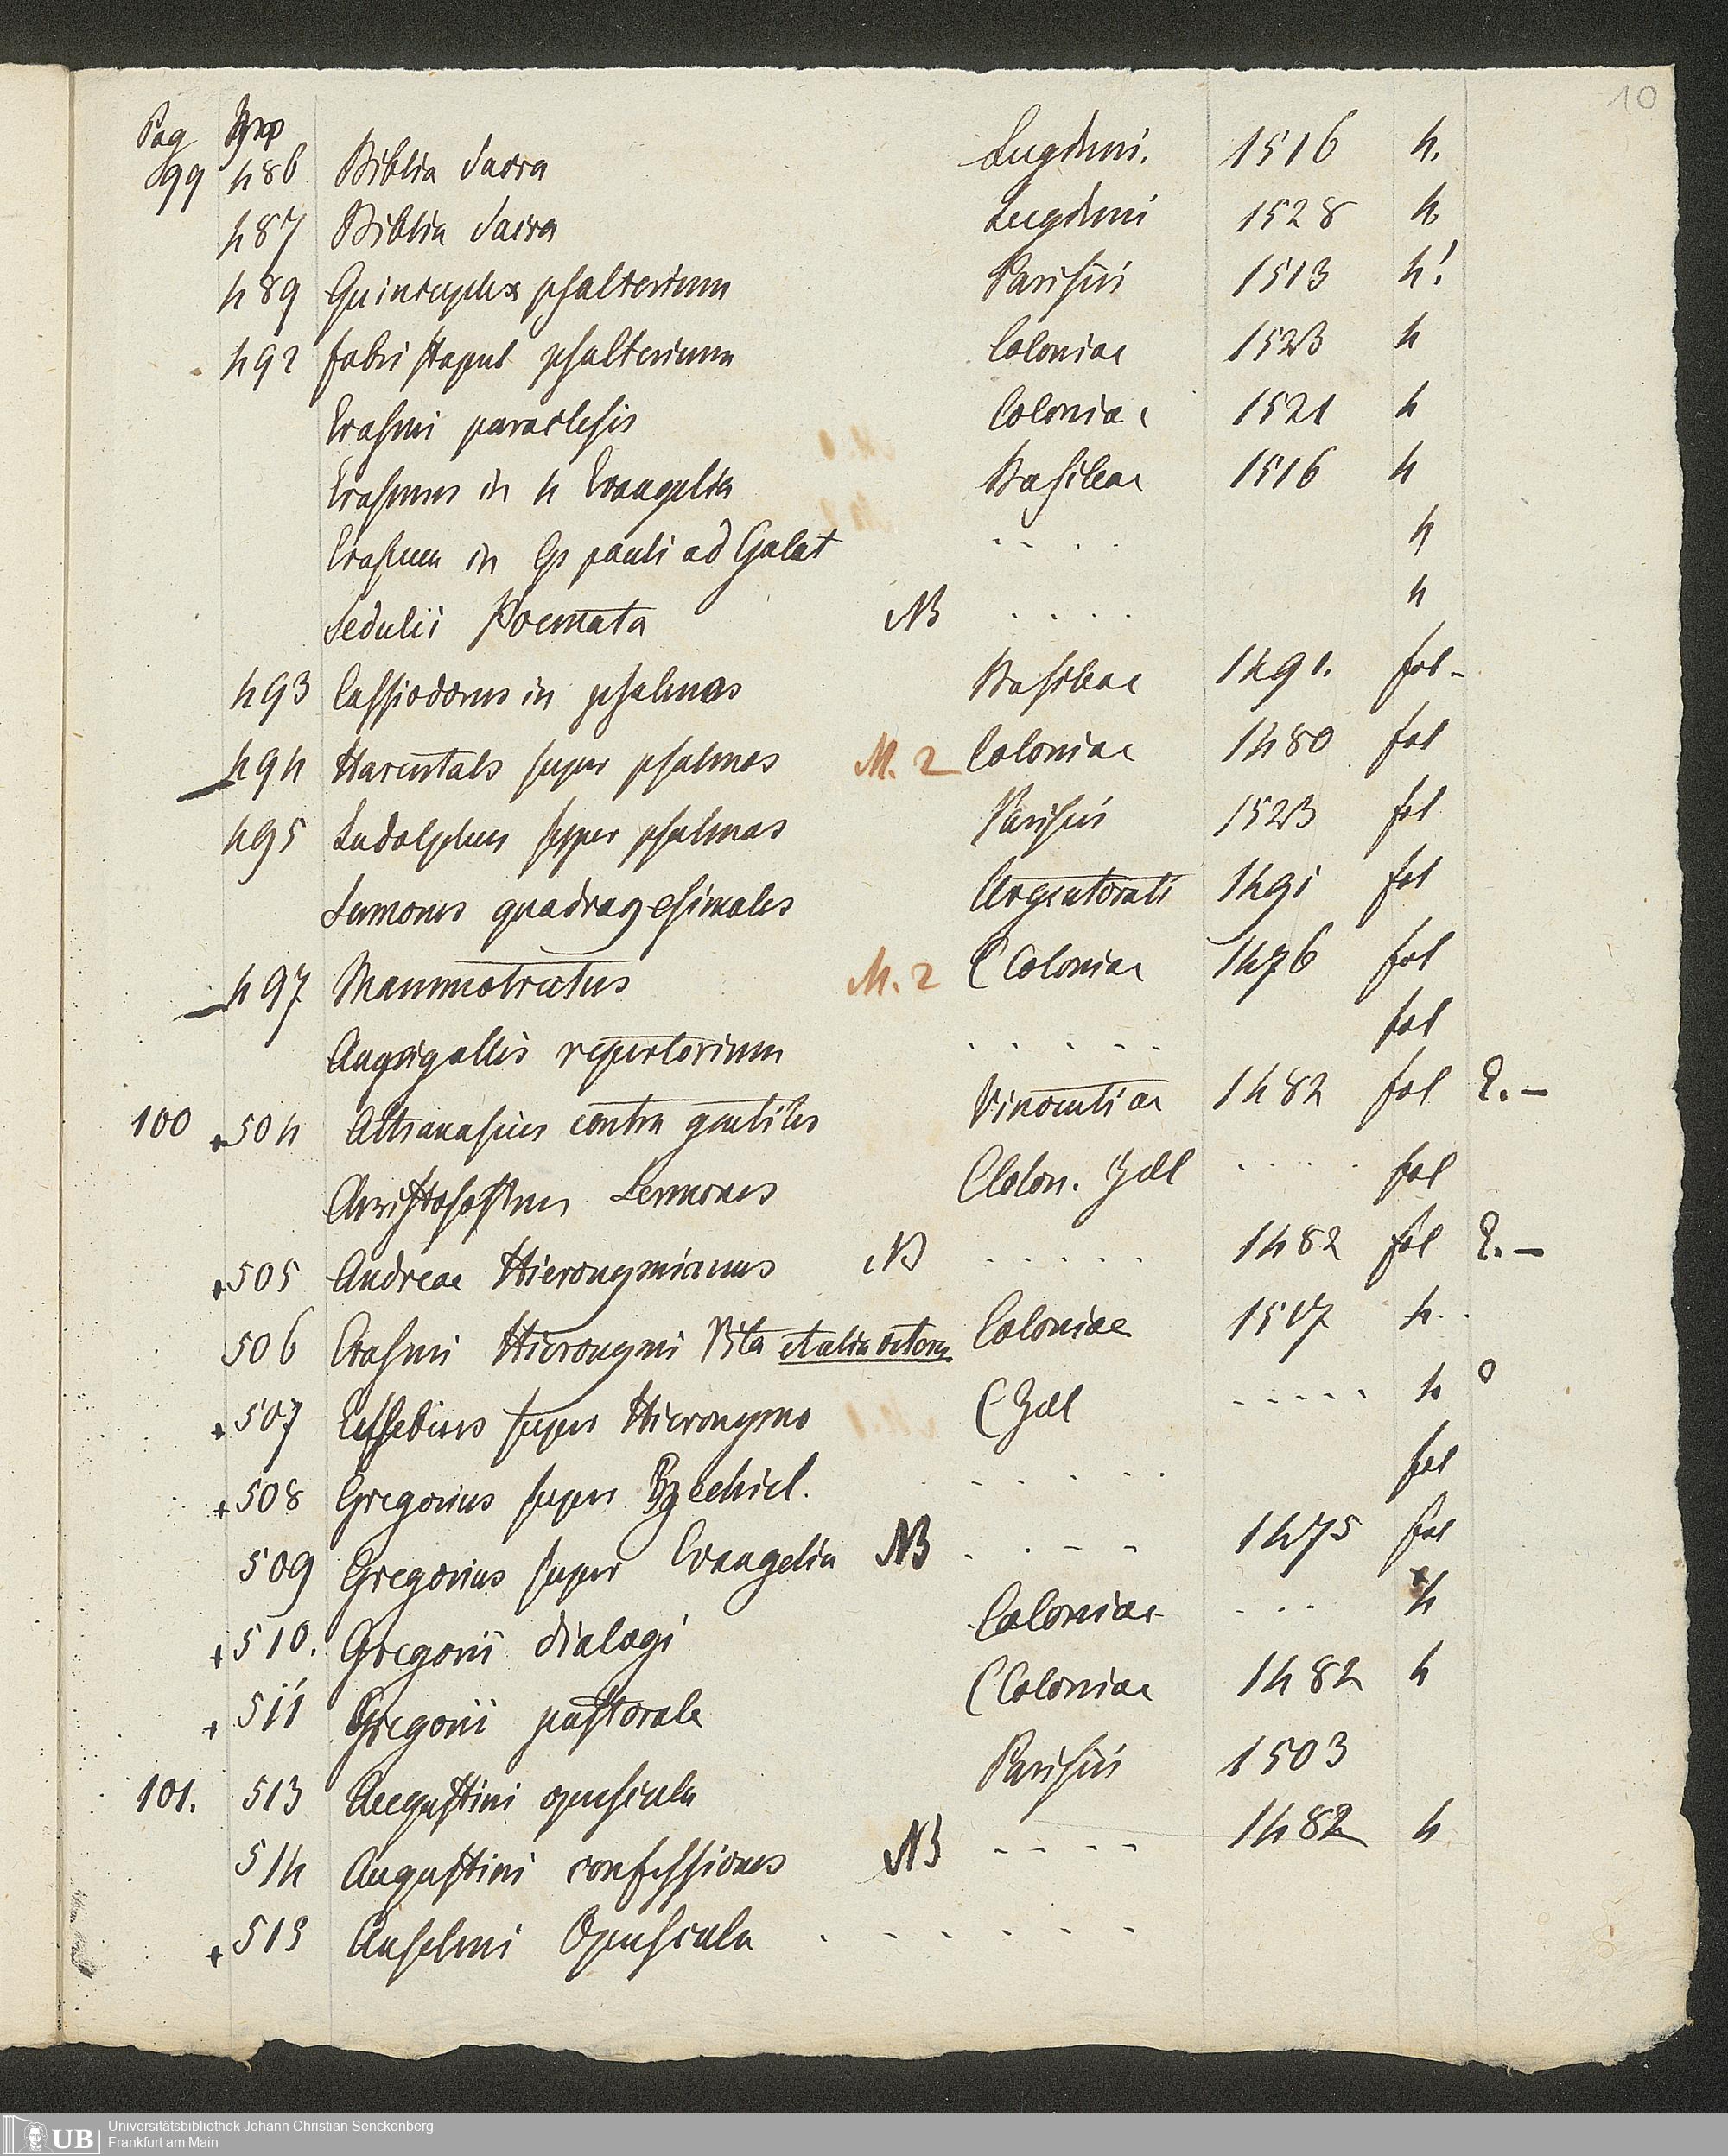 10
Pag
99 486 Biblia Sacra Lugduni. 1516 4.
487 Biblia Sacra Lugduni 1528 4.
489 Quincuplex psalterium Parisiis 1513 4!
492 fabri stapul psalterium Coloniae 1523 4
Erasmi paraclesis Coloniae 1521 4
Erasmus in 4 Evangelia Basileae 1516 4
Erasmus in Ep pauli ad Galat - - . . 4
Sedulii Poemata NB . . . . . 4
493 Cassiodorus in psalmos Basileae 1491. fol-
494 Harentals super psalmos M. 2 Coloniae 1480 fol
495 Ludolphus super psalmos Parisiis 1523 fol
Sermones quadragesimales Argentorati 1491 fol
497 Mammotrectus M. 2 C Coloniae 1476 fol
repertorium . . . . . fol
100 +504 Athanasius contra gentiles Vincentiae 1482 fol 2.-
Sermones Colon. Zell . . . . . fol
+505 Andreae Hieronymianus NB . . . . . 1482 fol 2.-
506 Erasmi Hieronymi Vita et alia Coloniae 1517 4.
+507 Eusebius super Hieronymo C Zell - - - - - 4 0
+508 Gregorius super Ezechiel. - - - - - fol
509 Gregorius super Evangelia NB . . - - 1475 fol
+510. Gregorii dialogi Coloniae - - - 4
+511 Gregorii pastorale C Coloniae 1482 4
101. 513 Augustini opuscula Parisiis 1503
514 Augustini confessiones NB - - - - 1482 4
+515 Anselmi Opuscula . - - - - -
UB Universitätsbibliothek Johann Christian Senckenberg
Frankfurt am Main